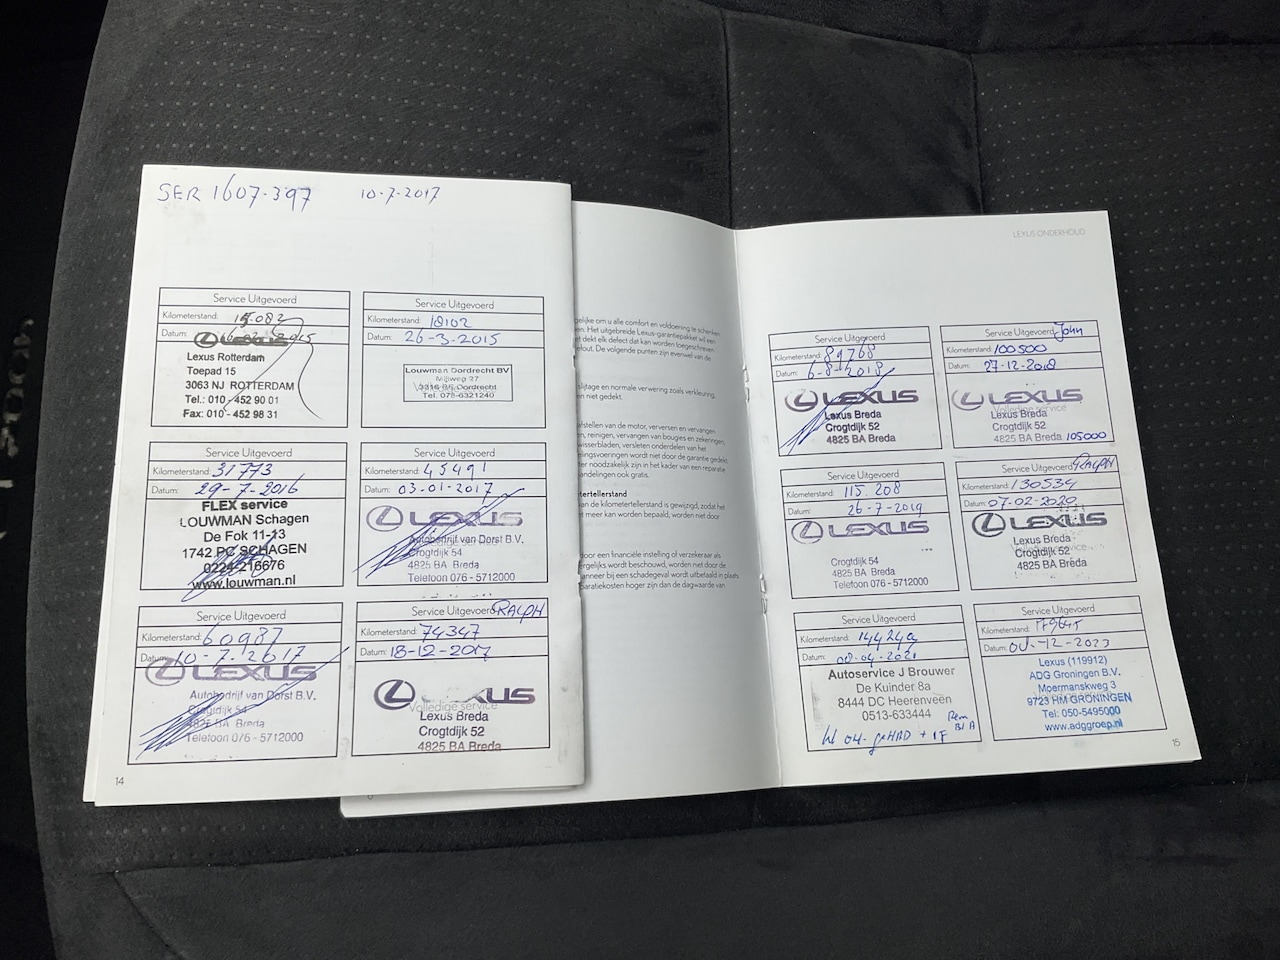 SER 1607-397 10-7-2017
Service Uitgevoerd
Kilometerstand: 15.082
Datum: 2015
LEXUS
Lexus Rotterdam
Toepad 15
3063 NJ ROTTERDAM
Tel.: 010 - 452 90 01
Fax: 010 - 452 98 31
Service Uitgevoerd
Kilometerstand: 18102
Datum: 26-3-2015
Louwman Dordrecht BV
Mijlweg 27
3316 BE Dordrecht
Tel. 078-6321240
Service Uitgevoerd
Kilometerstand: 31773
Datum: 29-7-2016
FLEX service
LOUWMAN Schagen
De Fok 11-13
1742 PC SCHAGEN
0224-216676
www.louwman.nl
Service Uitgevoerd
Kilometerstand: 45491
Datum: 03-01-2017
LEXUS
Autobedrijf van Dorst B.V.
Crogtdijk 54
4825 BA Breda
Telefoon 076 - 5712000
Service Uitgevoerd
Kilometerstand: 60987
Datum: 10-7-2017
LEXUS
Autobedrijf van Dorst B.V.
Crogtdijk 54
4825 BA Breda
Telefoon 076 - 5712000
Service Uitgevoerd RALPH
Kilometerstand: 74347
Datum: 18-12-2017
LEXUS
Volledige service
Lexus Breda
Crogtdijk 52
4825 BA Breda
14
gelijke om u alle comfort en voldoening te schenken
en. Het uitgebreide Lexus-garantiepakket wil een
dekt elk defect dat kan worden toegeschreven
fout. De volgende punten zijn evenwel van de
slijtage en normale verwering zoals verkleuring,
en niet gedekt.
afstellen van de motor, verversen en vervangen
en, reinigen, vervangen van bougies en zekeringen,
wisserbladen, versleten onderdelen van het
wordt niet door de garantie gedekt
er noodzakelijk zijn in het kader van een reparatie
handelingen ook gratis.
metertellerstand
van de kilometertellerstand is gewijzigd, zodat het
meer kan worden bepaald, worden niet door
door een financiële instelling of verzekeraar als
ergelijks wordt beschouwd, worden niet door de
wanneer bij een schadegeval wordt uitbetaald in plaats
paratiekosten hoger zijn dan de dagwaarde van
LEXUS ONDERHOUD
Service Uitgevoerd
Kilometerstand: 89768
Datum: 6-8-2018
LEXUS
Lexus Breda
Crogtdijk 52
4825 BA Breda
Service Uitgevoerd John
Kilometerstand: 100500
Datum: 27-12-2018
LEXUS
Volledige service
Lexus Breda
Crogtdijk 52
4825 BA Breda 105000
Service Uitgevoerd
Kilometerstand: 115.208
Datum: 26-7-2019
LEXUS
Crogtdijk 54
4825 BA Breda
Telefoon 076 - 5712000
Service Uitgevoerd RALPH
Kilometerstand: 130534
Datum: 07-02-2020
LEXUS
Lexus Breda
Crogtdijk 52
4825 BA Breda
Service Uitgevoerd
Kilometerstand: 144249
Datum: 08-04-2021
Autoservice J Brouwer
De Kuinder 8a
8444 DC Heerenveen
0513-633444
Service Uitgevoerd
Kilometerstand: 179645
Datum: 04-12-2023
Lexus (119912)
ADG Groningen B.V.
Moermanskweg 3
9723 HM GRONINGEN
Tel: 050-5495000
www.adggroep.nl
15